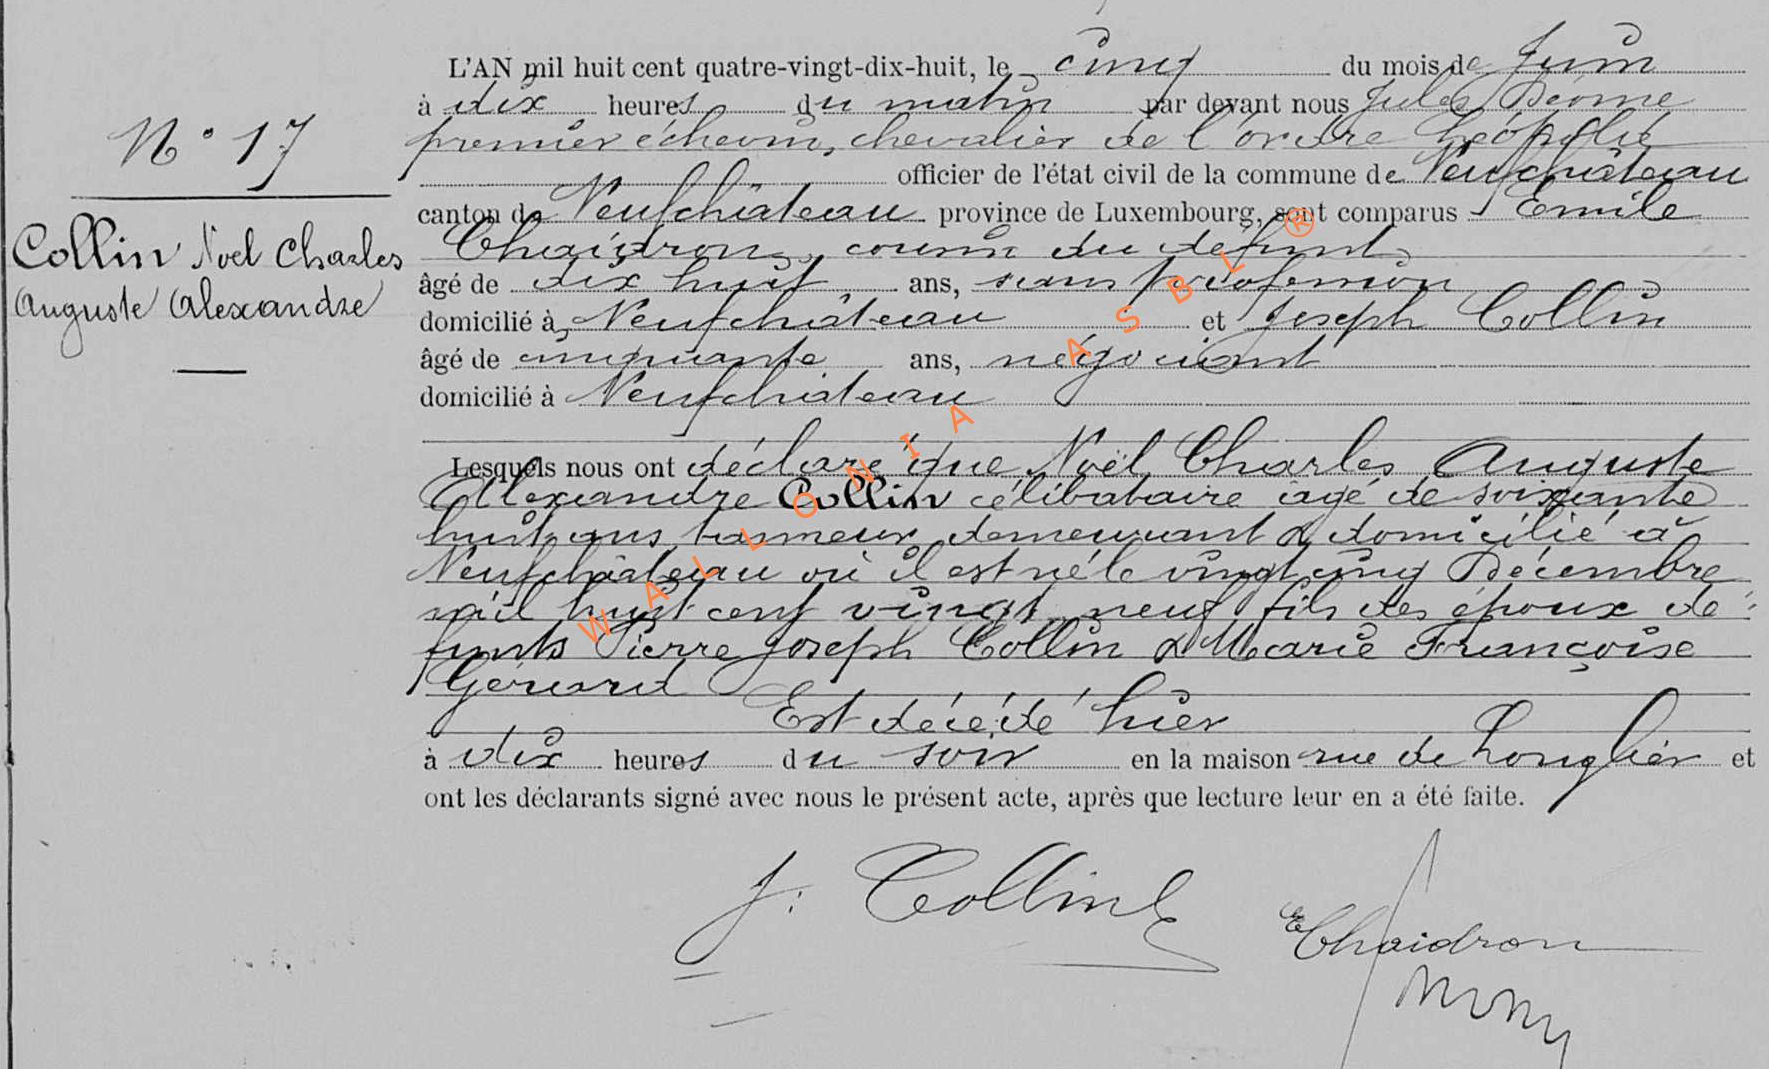 N° 17
Collin Noel Charles
Auguste Alexandre
L'AN mil huit cent quatre-vingt-dix-huit, le cinq du mois de Juin
à dix heures du matin par devant nous Jules
premier échevin, chevalier de l'ordre Léopold
officier de l'état civil de la commune de Neufchâteau
canton de Neufchâteau province de Luxembourg, sont comparus Emile
Chaidron, cousin du défunt,
âgé de dix huit ans, sans profession
domicilié à Neufchâteau et Joseph Collin
âgé de cinquante ans, négociant
domicilié à Neufchâteau
Lesquels nous ont déclaré que Noël Charles Auguste
Alexandre Collin célibataire âgé de soixante
huit ans tanneur demeurant & domicilié à
Neufchâteau où il est né le vingt cinq Décembre
mil huit cent vingt neuf fils des époux dé-
funts Pierre Joseph Collin & Marie Françoise
Gérard
Est décédé hier
à dix heures du soir en la maison rue de Longlier et
ont les déclarants signé avec nous le présent acte, après que lecture leur en a été faite.
J. Collin
E Chaidron
WALLONIA ASBL ®